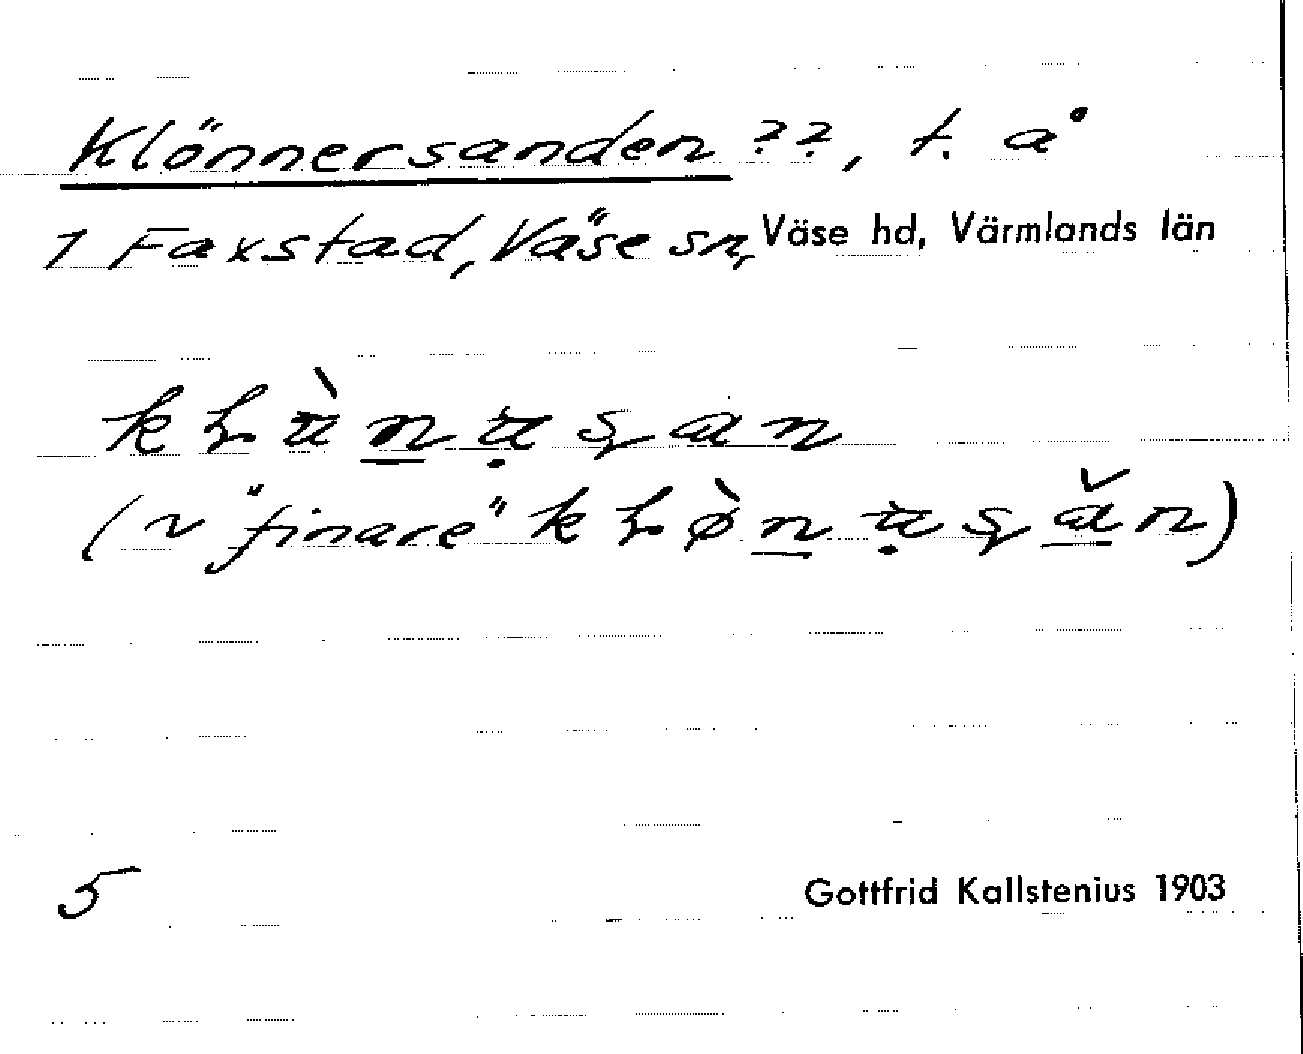 Klönnersanden ??, t. å
1 Faxstad, Väse sn, Väse hd, Värmlands län
(~ "finare"
5
Gottfrid Kallstenius 1903